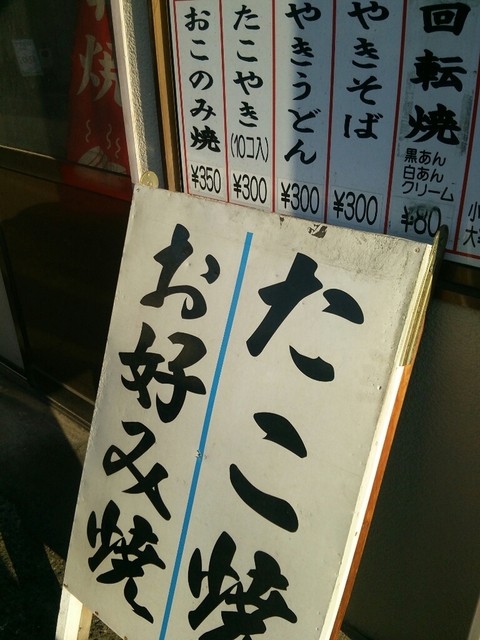 回転焼
黒あん
白あん
クリーム
¥80
やきそば
¥300
やきうどん
¥300
たこやき
(10コ入)
¥300
おこのみ焼
¥350
焼
たこ焼
お好み焼